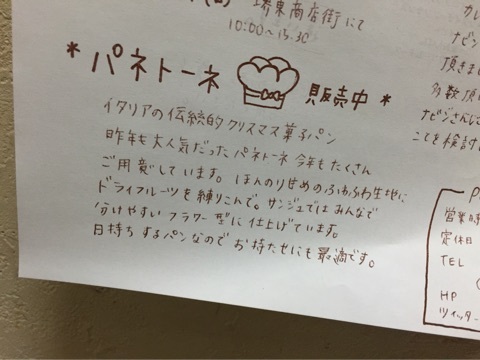 堺東商店街にて
10:00〜15:30
* パネトーネ 販売中 *
イタリアの伝統的クリスマス菓子パン
昨年も大人気だったパネトーネ今年もたくさん
ご用意しています。ほんのり甘めのふわふわ生地に
ドライフルーツを練りこんで。サンジュではみんなで
分けやすいフラワー型に仕上げています。
日持ちするパンなのでお持たせにも最適です。
カレ
ナビン
頂きま
多数頂
ナビンさんに
ことを検討
P
営業時
定休日
TEL
(
HP
ツイッター